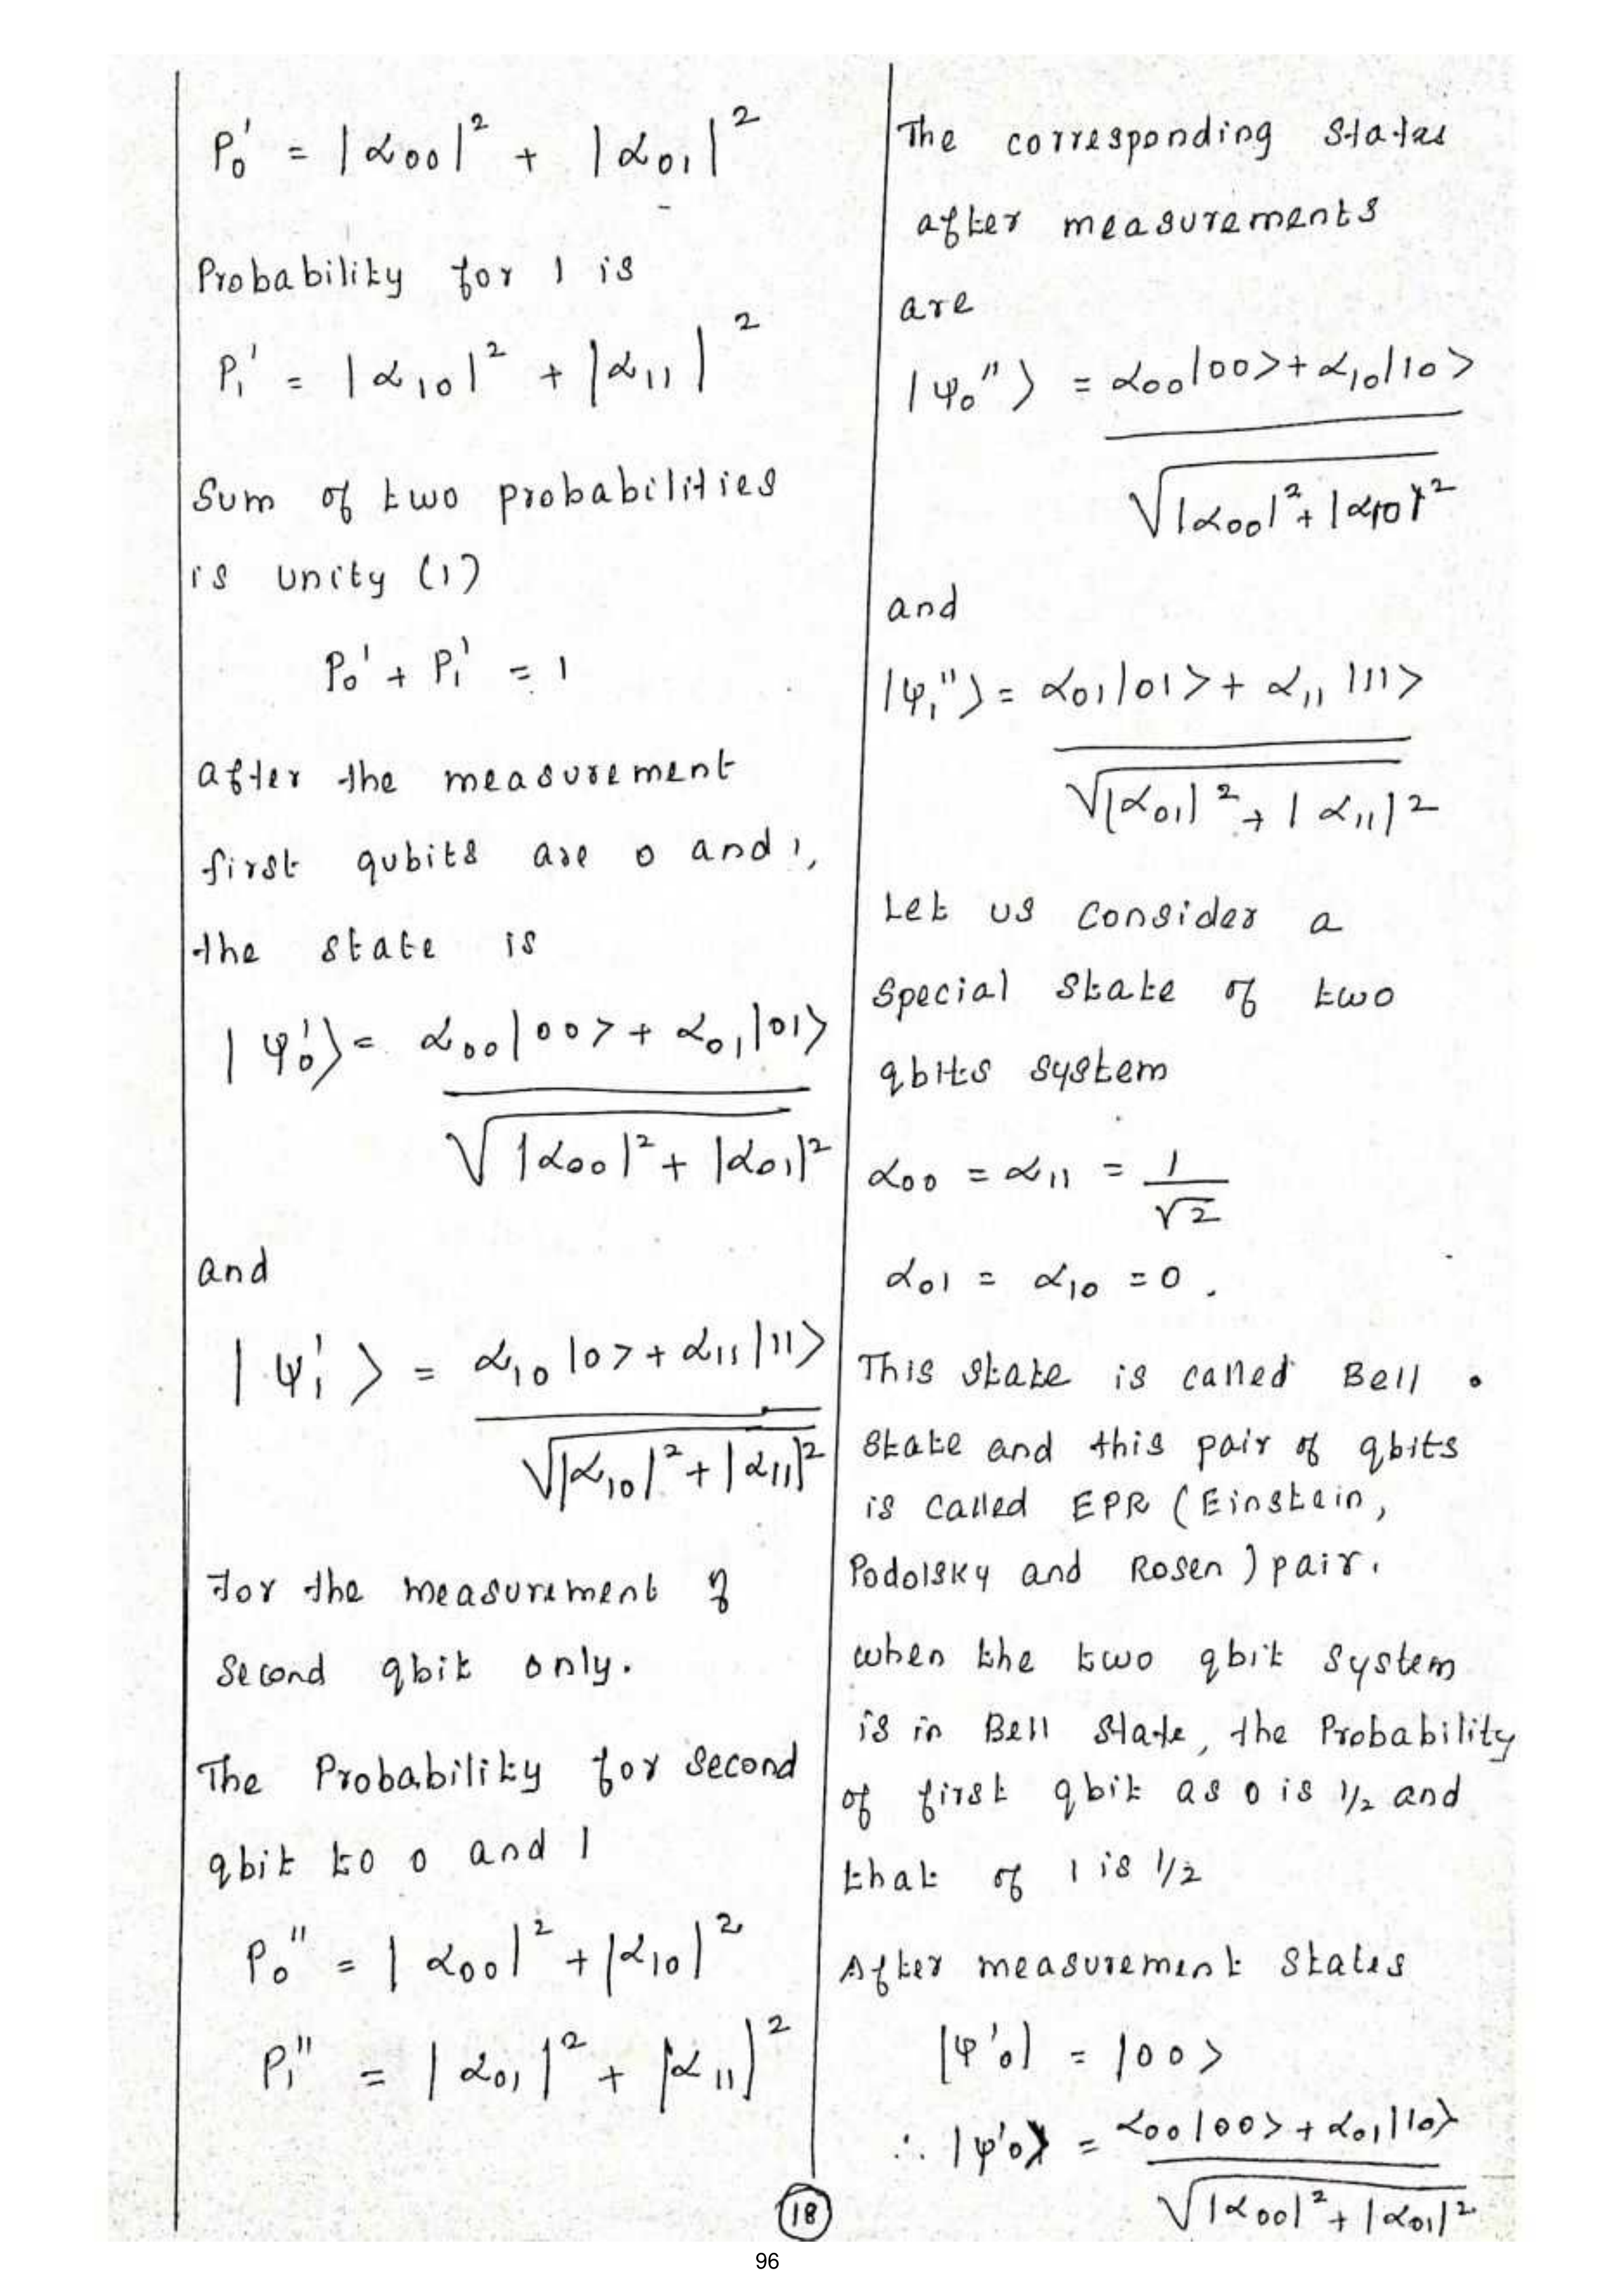 P₀' = |α₀₀|² + |α₀₁|²
Probability for 1 is
P₁' = |α₁₀|² + |α₁₁|²
Sum of two probabilities
is unity (1)
P₀' + P₁' = 1
after the measurement
first qubits are 0 and 1,
the state is
|ψ₀'⟩ = α₀₀|00> + α₀₁|01⟩
√|α₀₀|² + |α₀₁|²
and
|ψ₁'⟩ = α₁₀|0> + α₁₁|11⟩
√|α₁₀|² + |α₁₁|²
for the measurement of
second qbit only.
The Probability for second
qbit to 0 and 1
P₀'' = |α₀₀|² + |α₁₀|²
P₁'' = |α₀₁|² + |α₁₁|²
The corresponding states
after measurements
are
|ψ₀''⟩ = α₀₀|00> + α₁₀|10>
√|α₀₀|² + |α₁₀|²
and
|ψ₁''⟩ = α₀₁|01> + α₁₁|11>
√|α₀₁|² + |α₁₁|²
Let us consider a
special state of two
qbits system
α₀₀ = α₁₁ = 1/√2
α₀₁ = α₁₀ = 0.
This state is called Bell
state and this pair of qbits
is called EPR (Einstein,
Podolsky and Rosen) pair.
when the two qbit system
is in Bell state, the Probability
of first qbit as 0 is 1/2 and
that of 1 is 1/2
After measurement states
|ψ'₀| = |00>
∴ |ψ'₀⟩ = α₀₀|00> + α₀₁|10⟩
√|α₀₀|² + |α₀₁|²
18
96